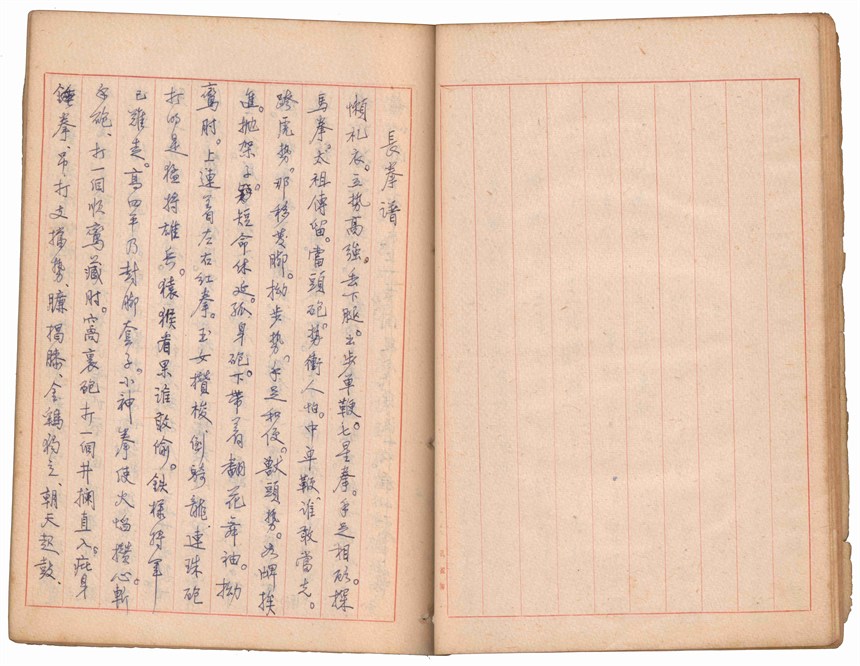 長拳谱
懶札衣。立势高強。丢下腿。出步单鞭。七星拳。手足相顾。探
馬拳。太祖傳留。當頭砲。势衝人怕。中单鞭。谁敢當先。
跨虎势。那移发脚。拗步势。手足和便。獸頭势。如牌挨
進。抛架子。短命休延。孤身砲。下带着翻花舞袖。拗
鸾肘。上連着左右红拳。玉女攢梭倒騎龍。連珠砲
打的是猛将雄兵。猿猴看果谁敢偷。鉄樣将軍
也難走。高四平乃封脚套子。小神拳使火焰攒心。斬
手砲、打一個順鸾藏肘。窩裏砲打一個井摑直入。庇身
錘拳、吊打支、势、臁揭膝、金鶏独立、朝天起鼓、